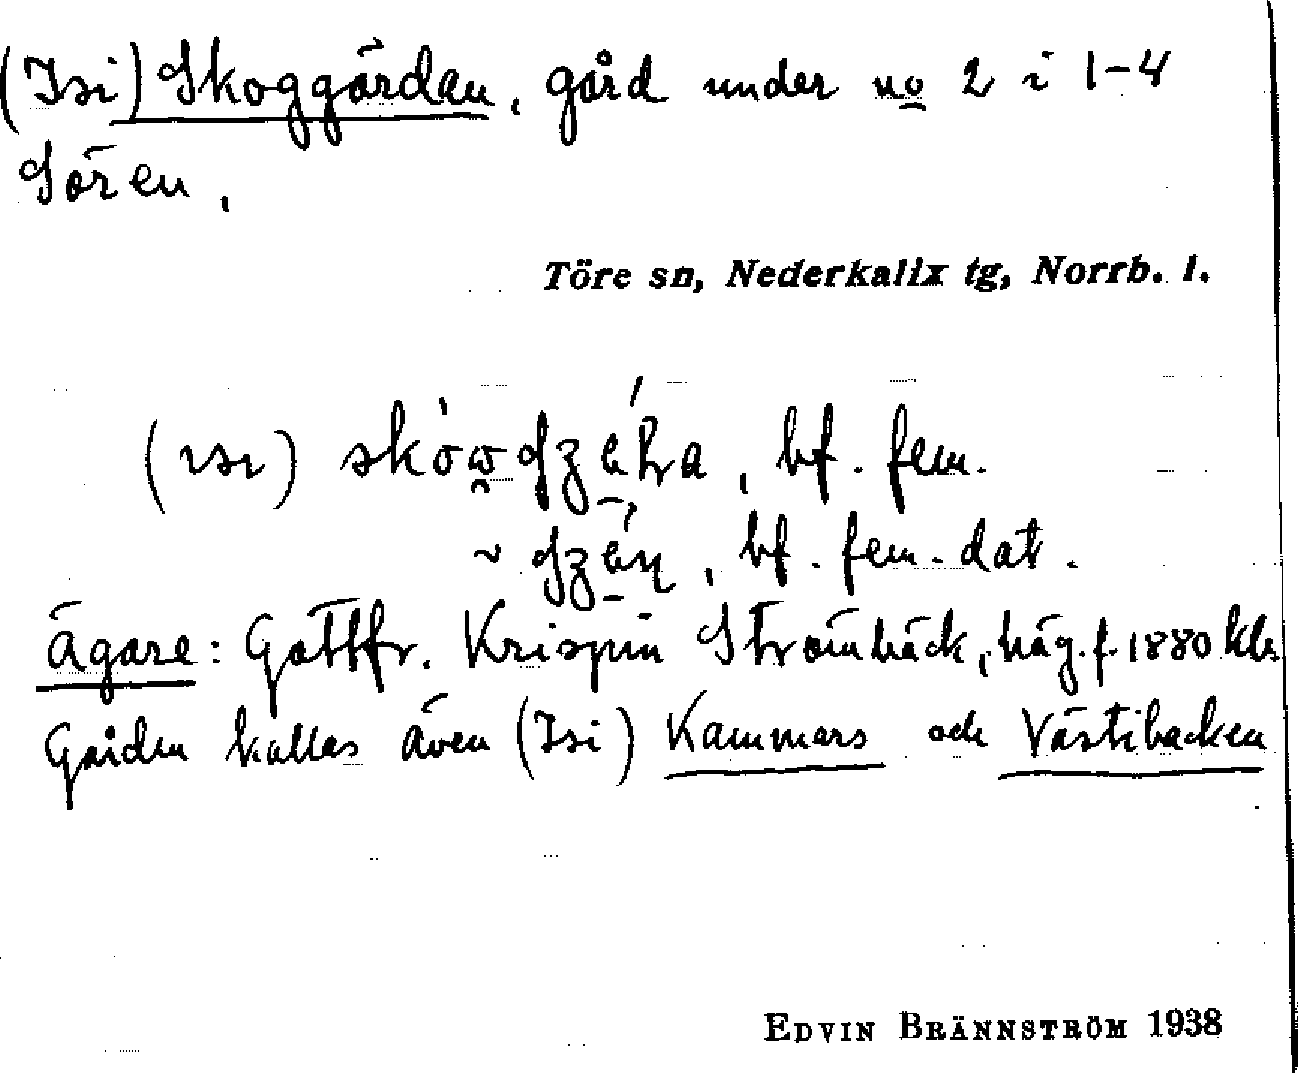 (Isi) Skoggärdan, gård under no 2 i 1-4
Sören.
Töre sn, Nederkalix tg, Norrb. l.
(ısı) , bf. fem.
~ , bf. fem. dat.
Ägare: Gottfr. Krispin Strömbäck, häg. f. 1880
Gården kallas även (Isi) Kammars och Västibacken
EDVIN BRÄNNSTRÖM 1938